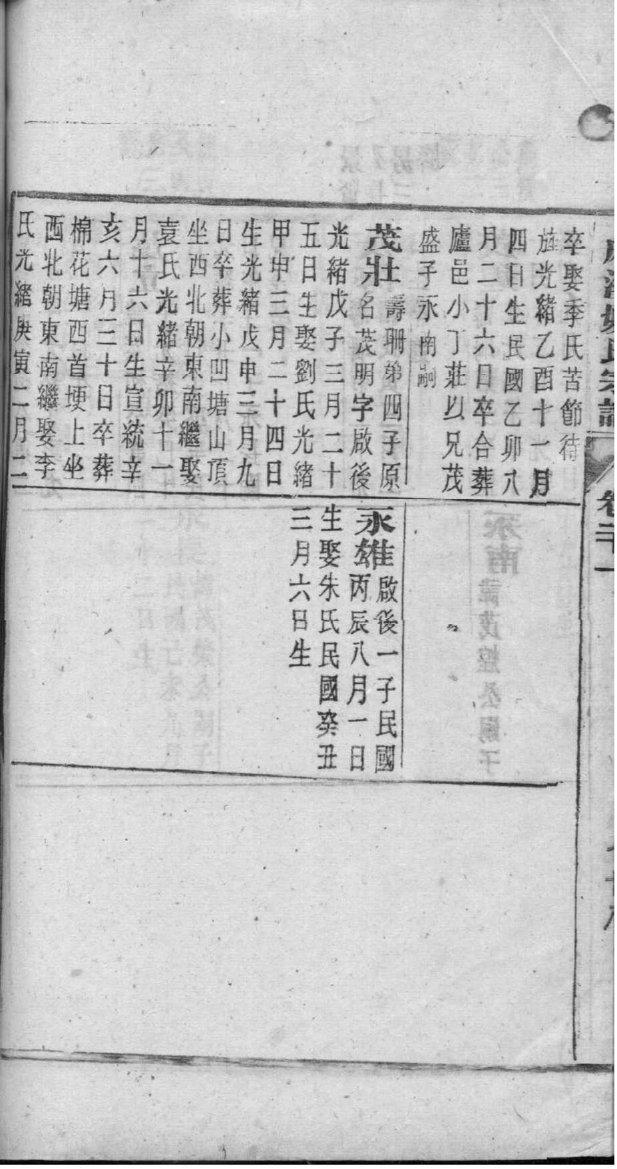 卒娶季氏苦節待
旌光緒乙酉十一月
四日生民國乙卯八
月二十六日卒合葬
廬邑小丁莊以兄茂
盛子永南嗣
茂壯 壽珊第四子原
名茂明字啟後
光緒戊子三月二十
五日生娶劉氏光緒
甲申三月二十四日
生光緒戊申三月九
日卒葬小凹塘山頂
坐西北朝東南繼娶
袁氏光緒辛卯十一
月十六日生宣統辛
亥六月三十日卒葬
棉花塘西首埂上坐
西北朝東南繼娶李
氏光緒庚寅二月二
永雄 啟後一子民國
丙辰八月一日
生娶朱氏民國癸丑
三月六日生
氏宗譜